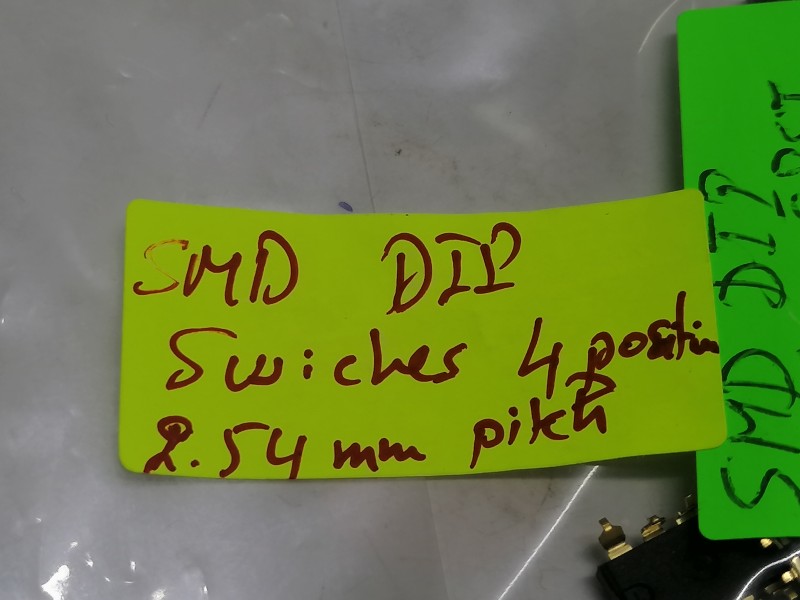 SMD DIP
Swiches 4 position
2.54 mm pitch
SMD DIP